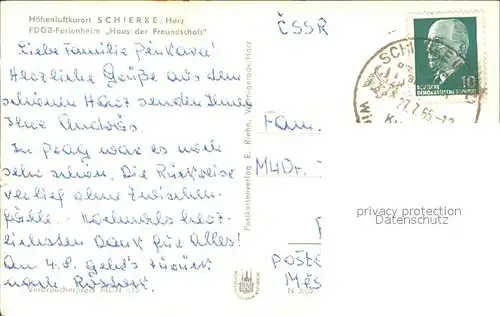 Höhenluftkurort SCHIERKE/Harz
FDGB-Ferienheim „Haus der Freundschaft"
ČSSR
Liebe Familie
Herzliche Grüße aus dem
schönen Harz senden Ihnen
Ihre
In Prag war es noch
sehr schön. Die Rückreise
verlief ohne Zwischen-
fälle. Nochmals herz-
lichsten Dank für Alles!
Am 4.8. geht's zurück
nach
Verbraucherpreis
Postkartenverlag E. Riehn, Wernigerode/Harz
10
DEUTSCHE
DEMOKRATISCHE
27.7.65-12
Fam.
MUDr.
privacy protection
Datenschutz